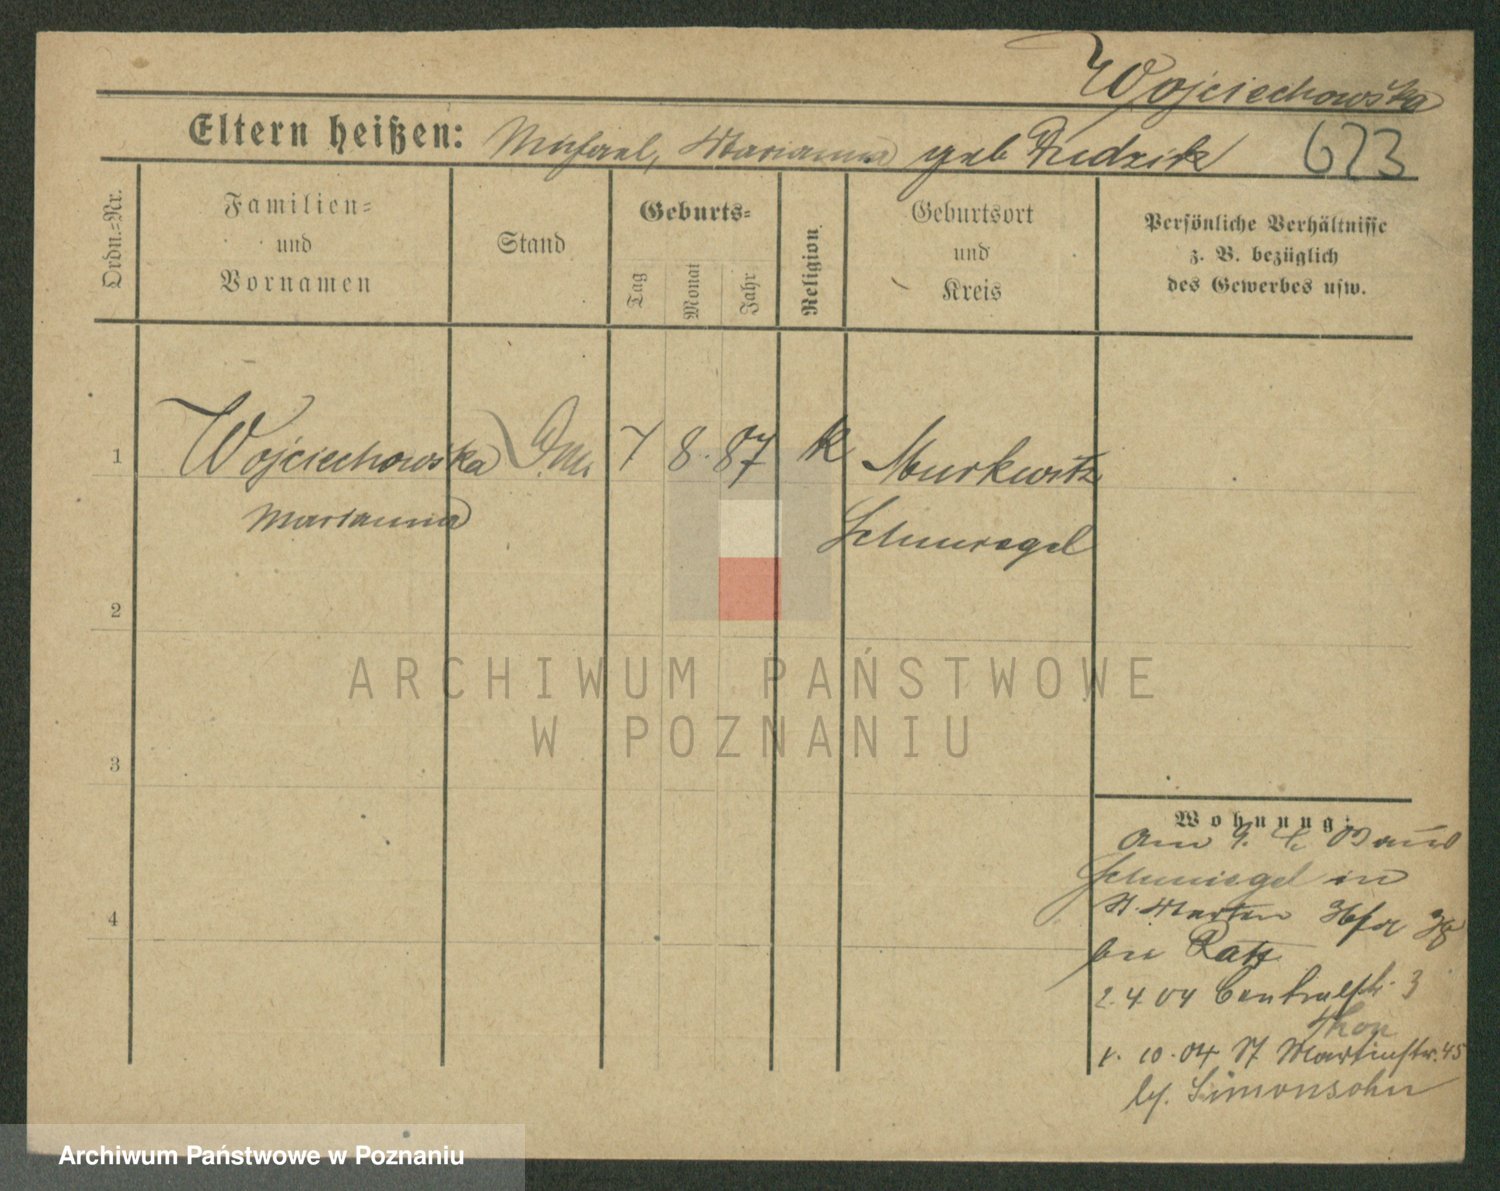 Wojciechowska
Eltern heißen: Michael, Marianna geb Dudzik 673
Ordn.-Nr.
Familien-
und
Vornamen
Stand
Geburts-
Tag
Monat
Jahr
Religion
Geburtsort
und
Kreis
Persönliche Verhältnisse
z. B. bezüglich
des Gewerbes usw.
1 Wojciechowska 7 8. 87 k Murkwitz
Marianna Schmiegel
2
ARCHIWUM PAŃSTWOWE
W POZNANIU
3
Wohnung:
am 9. 4. 03 aus
Schmiegel in
St. Martin
bei
4
2. 4 04 Centralstr. 3
Thon
1. 10. 04 St Martinstr. 45
bf. Simonsohn
Archiwum Państwowe w Poznaniu